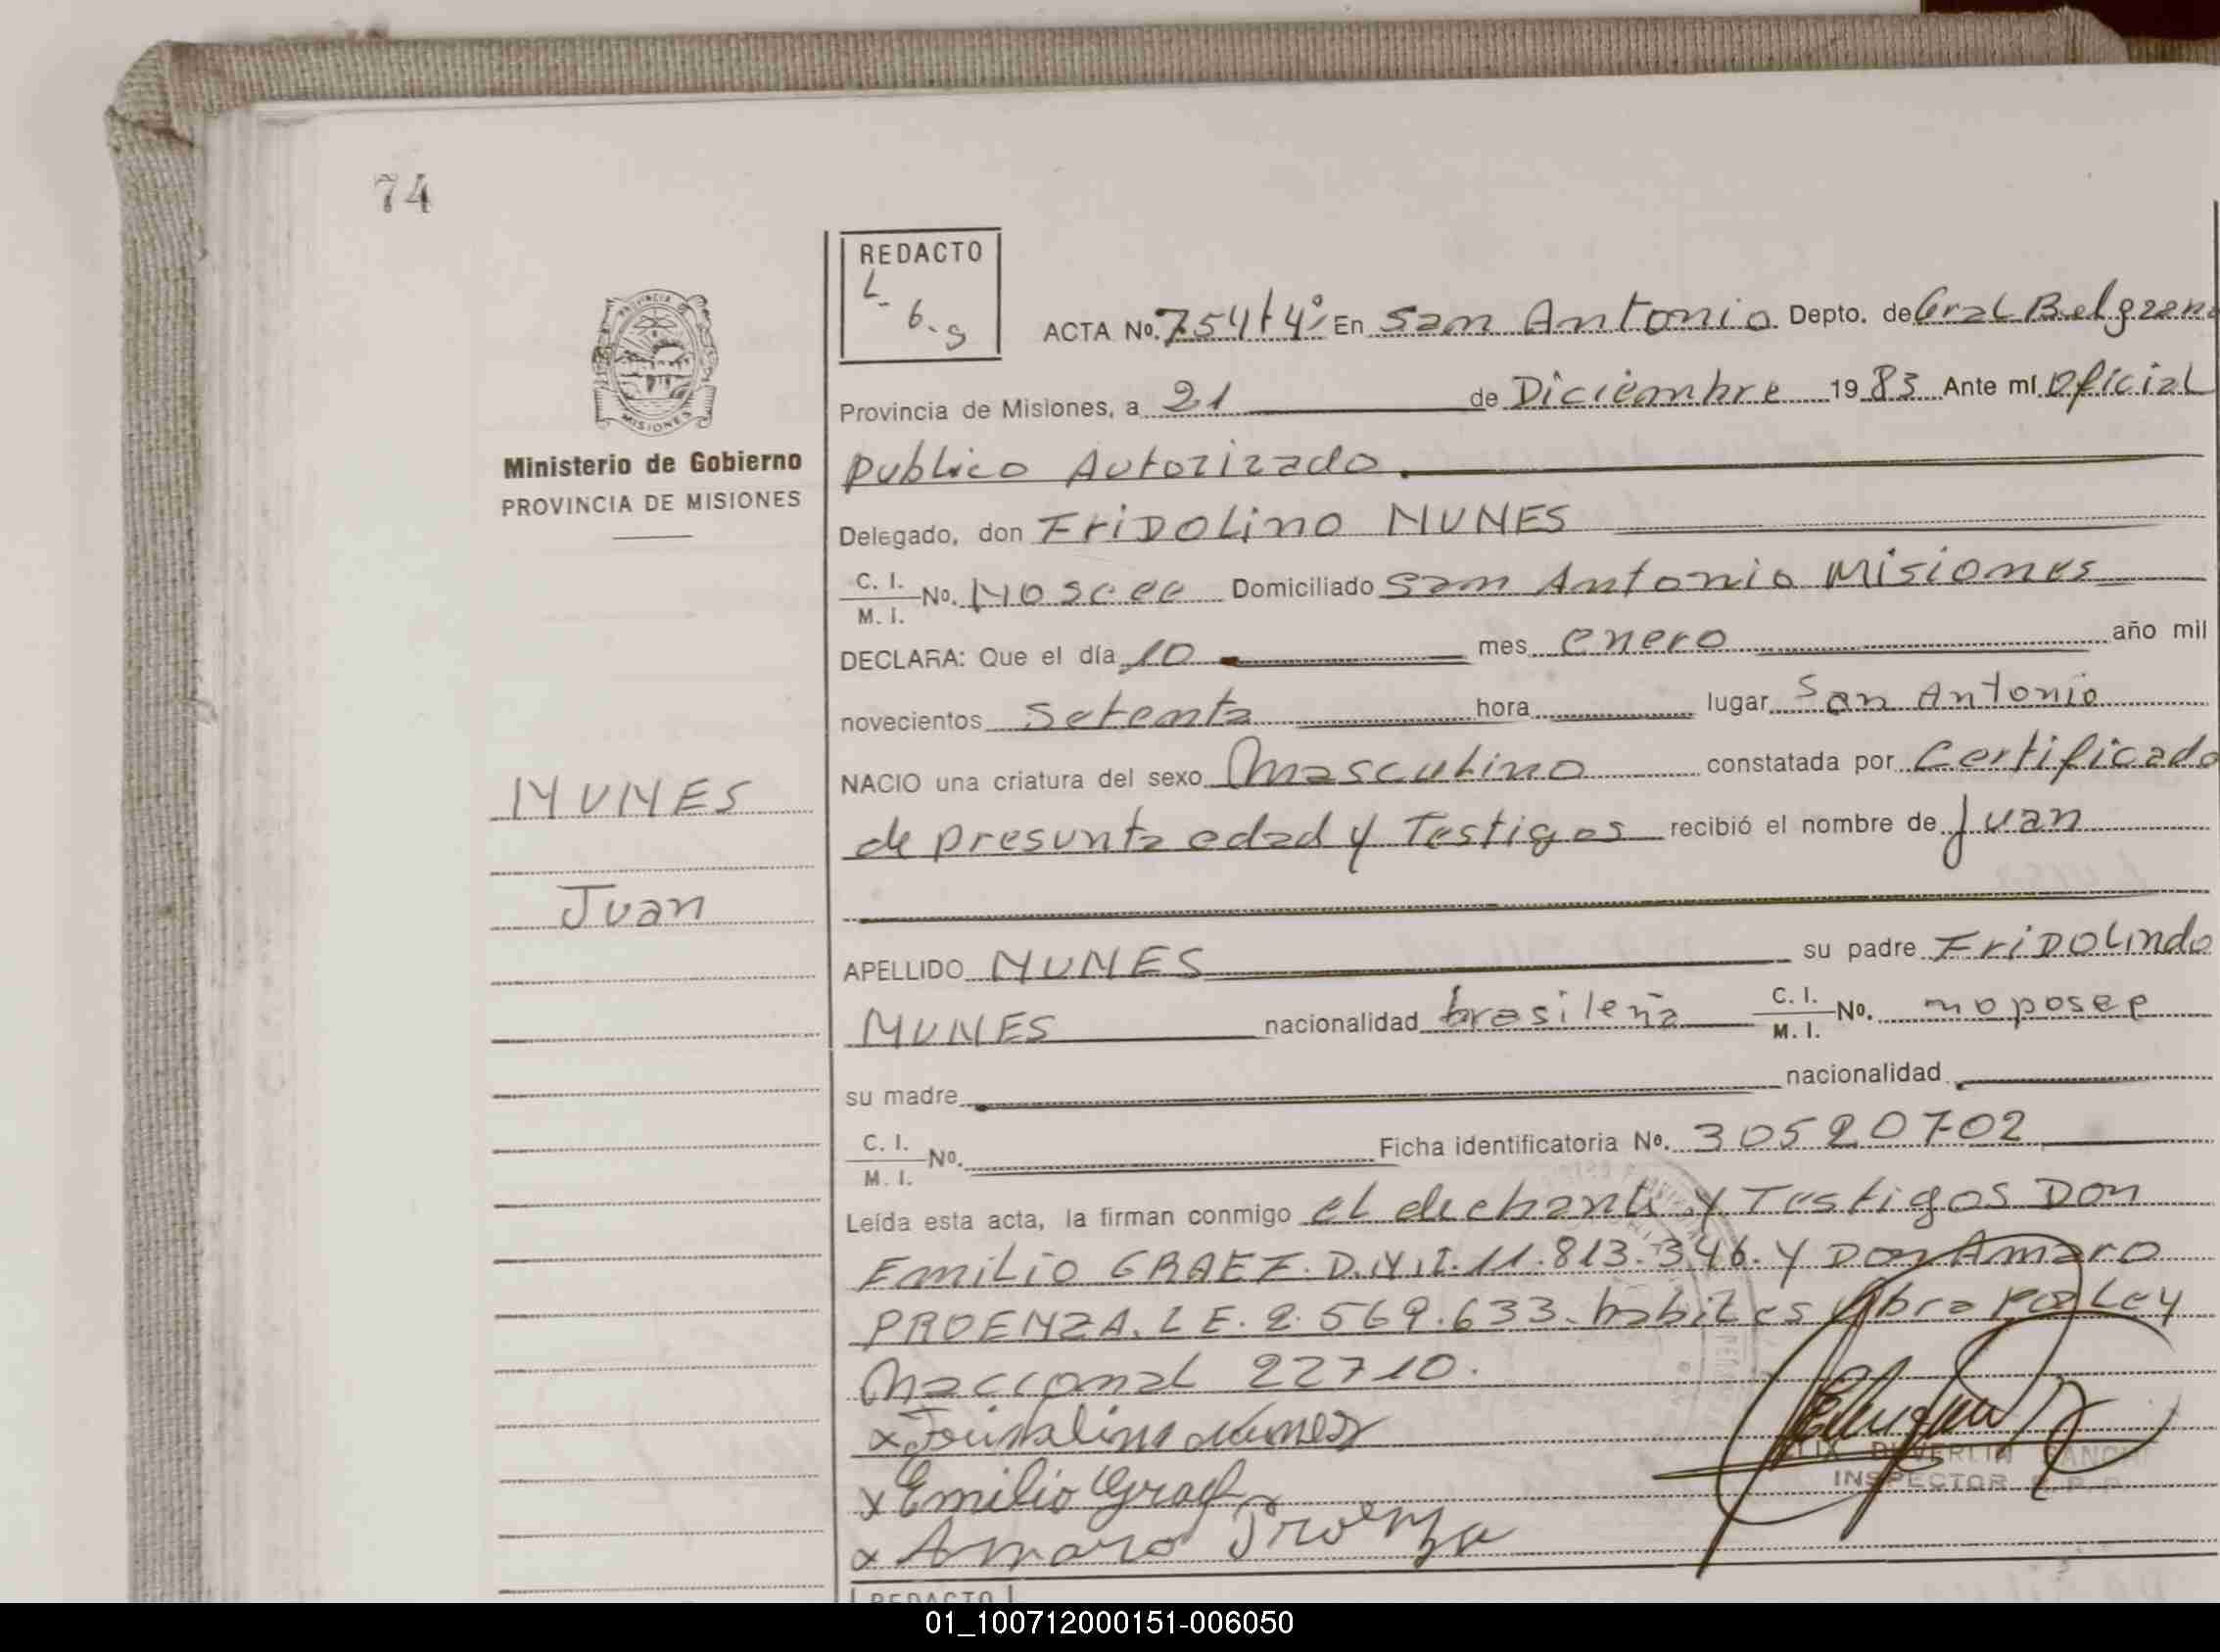 74
REDACTO
L-
6-S
ACTA No. 754 t 4º En San Antonio Depto. de Gral Belgrano
Provincia de Misiones, a 21 de Diciembre 1983 Ante mí Oficial
Ministerio de Gobierno
PROVINCIA DE MISIONES
PROVINCIA DE
MISIONES
publico Autorizado.
Delegado, don FriDOLino NUNES
C. I.
M. I. No. No scee Domiciliado San Antonio Misiones
DECLARA: Que el día 10 mes enero año mil
novecientos setenta hora lugar San Antonio
NACIO una criatura del sexo masculino constatada por Certificado
NUNES
de presunta edad y Testigos recibió el nombre de Juan
Juan
APELLIDO NUNES su padre FriDOLindo
NUNES nacionalidad brasileña C. I. M. I. No. no posee
su madre nacionalidad
C. I.
M. I. No. Ficha identificatoria No. 30520702
Leída esta acta, la firman conmigo el y Testigos Don
Emilio GRAEF. D.N.I. 11.813.346. y Don Amaro
PROENZA. L E. 2.569.633. habiles obra por Ley
Nacional 22710.
x Nunes
x Emilio Graef
x Amaro Proenza
INSPECTOR
REDACTO
01_100712000151-006050